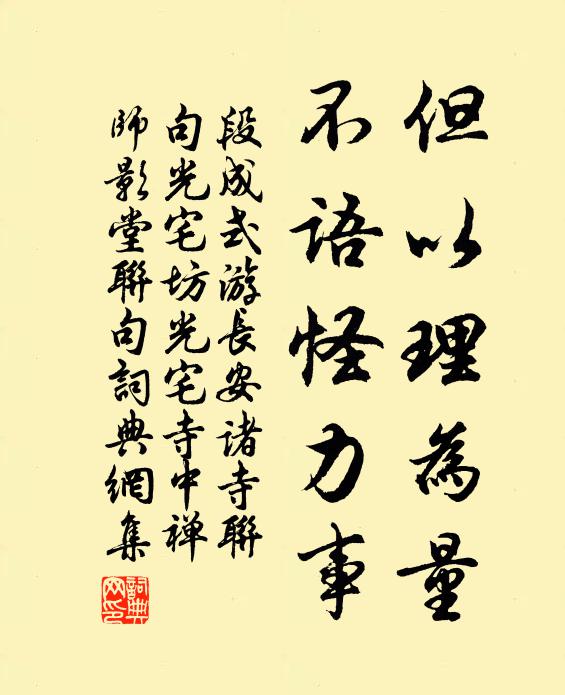 但以理為量
不語怪力事
段成式游長安諸寺聯
句光宅坊光宅寺中禅
师影堂聯句詞典網集
詞典
网印